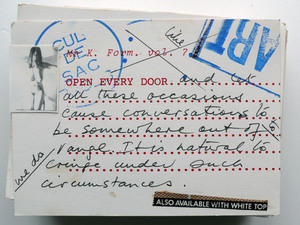 CUL
DE
SAC
ART
M.K. Form. vol. 7
like
OPEN EVERY DOOR. and let
all these occasions
cause conversations to
be somewhere out of
range. It is natural to
cringe under such
circumstances.
we do
ALSO AVAILABLE WITH WHITE TOP